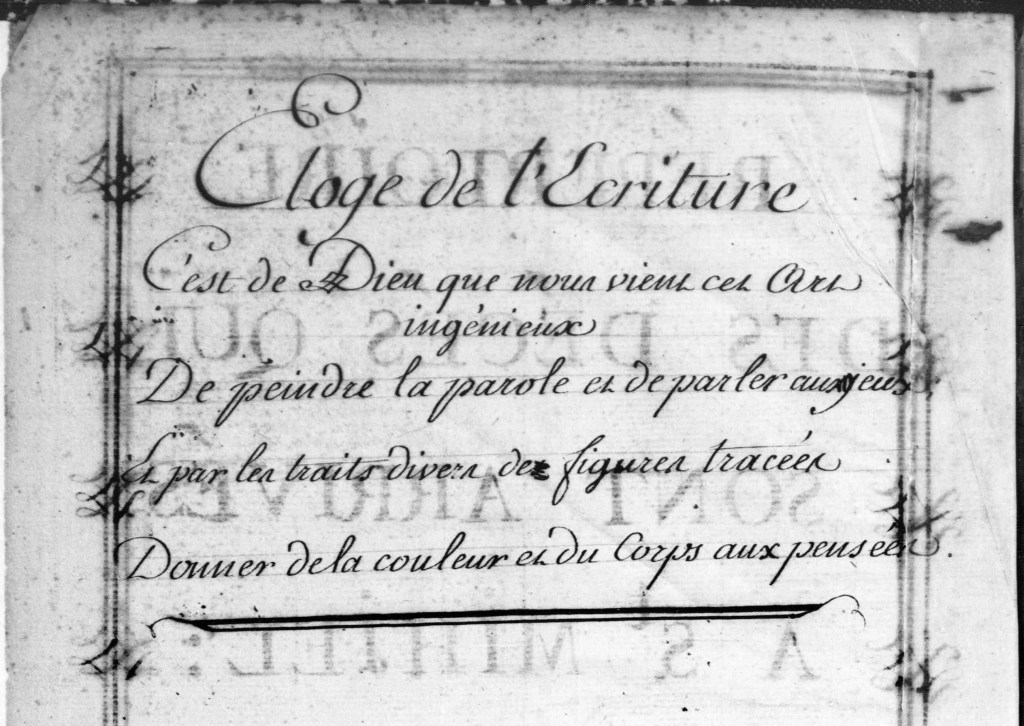 Eloge de l'Ecriture
C'est de Dieu que nous vient cet Art
ingénieux
De peindre la parole et de parler aux yeux,
Et par les traits divers de figures tracées
Donner de la couleur et du Corps aux pensées.
RÉPERTOIRE
DES DÉCÈS QUI
SONT ARRIVÉS
A St MIHIEL: